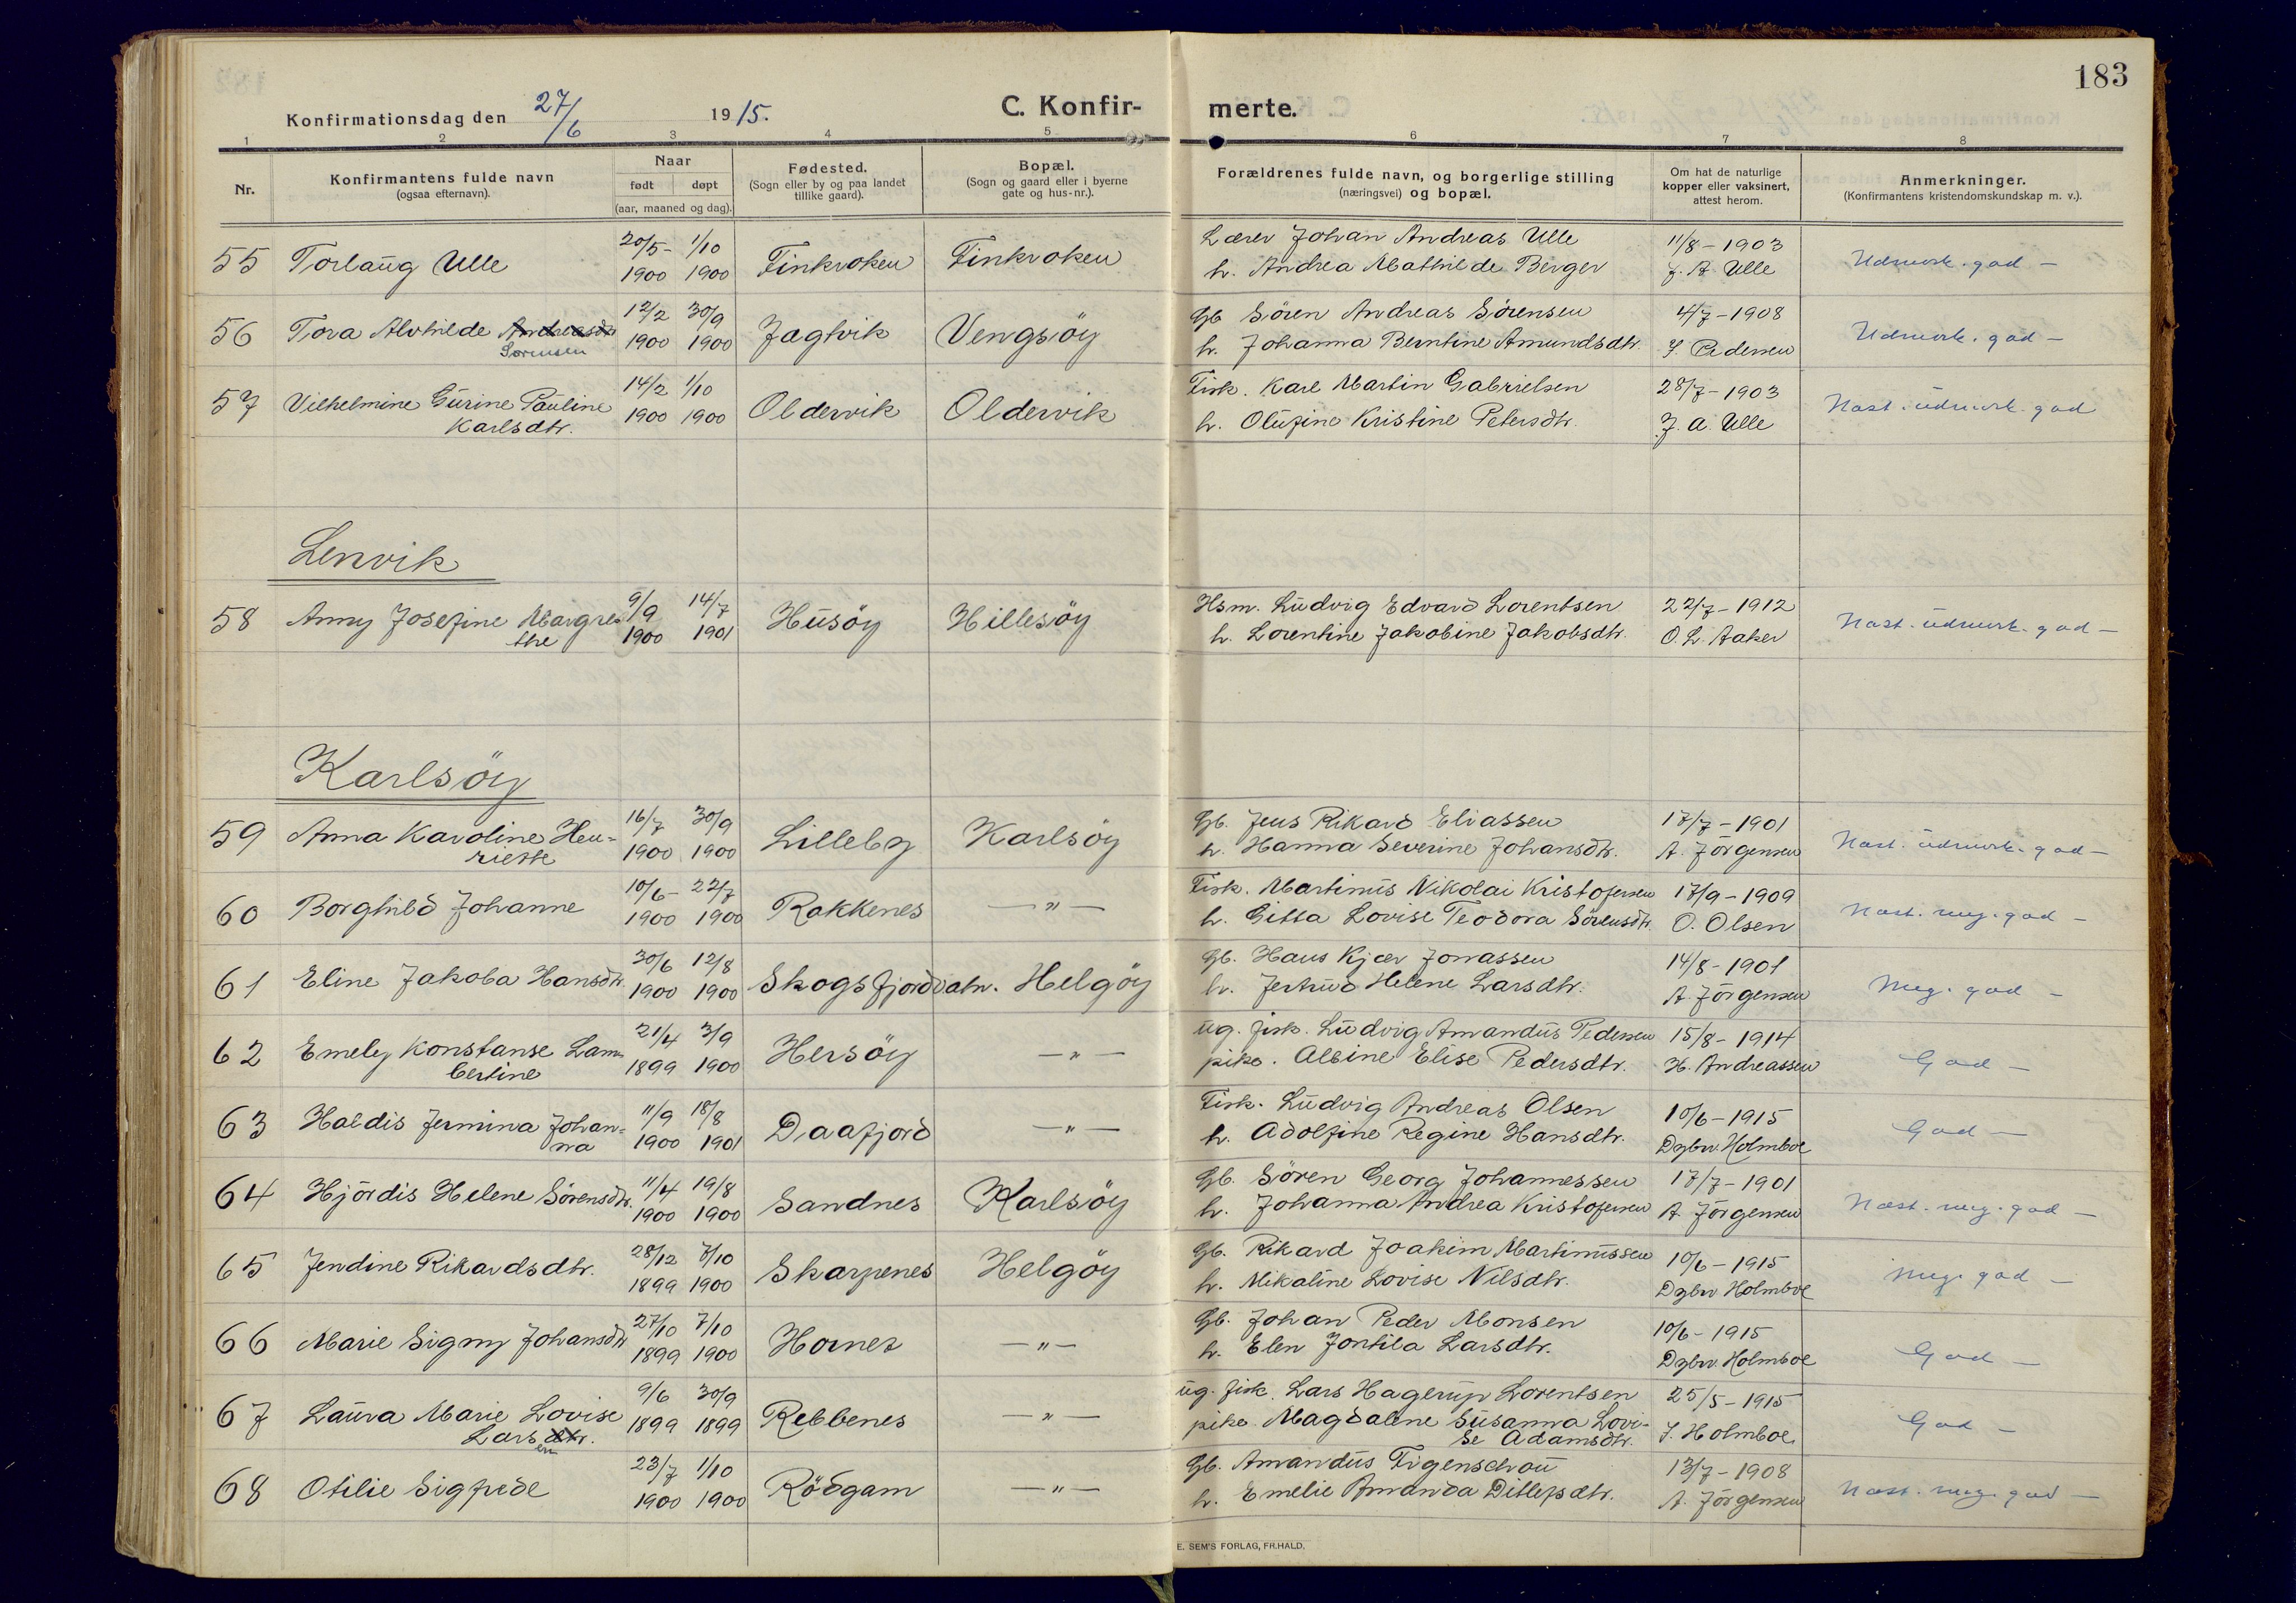 183
Konfirmationsdag den 27/6 1915.
C. Konfir-
merte.
1 2 3 4 5 6 7 8
Nr.
Konfirmantens fulde navn
(ogsaa efternavn).
Naar
født døpt
(aar, maaned og dag).
Fødested.
(Sogn eller by og paa landet
tillike gaard).
Bopæl.
(Sogn og gaard eller i byerne
gate og hus-nr.).
Forældrenes fulde navn, og borgerlige stilling
(næringsvei) og bopæl.
Om hat de naturlige
kopper eller vaksinert,
attest herom.
Anmerkninger.
(Konfirmantens kristendomskundskap m. v.).
20/5- 1/10 Lærer Johan Andreas Ulle 11/8-1903
55 Torlaug Ulle 1900 1900 Finkroken Finkroken h. Andrea Mathilde Berger J. A. Ulle Udmerk. god -
12/2 30/9 Gb Sören Andreas Sörensen 4/7-1908
56 Tora Alvhilde Andreasdtr 1900 1900 Jagtvik Vengsöy h. Johanna Berntine Amundsdtr. J. Pedersen Udmerk. god -
Sörensen
14/2 1/10 Fisk. Karl Martin Gabrielsen 28/7-1903
57 Vilhelmine Gurine Pauline 1900 1900 Oldervik Oldervik h. Olufine Kristine Petersdtr. J. A. Ulle Næst. udmerk. god
Karlsdtr.
Lenvik
9/9 14/7 Hsm. Ludvig Edvard Lorentsen 22/7-1912
58 Anny Josefine Margre- 1900 1901 Husöy Hillesöy h. Lorentine Jakobine Jakobsdtr. O. L. Aaker Næst. udmerk. god -
the
Karlsöy
16/7 30/9 Gb. Jens Rikard Eliassen 17/7-1901
59 Anna Karoline Hen- 1900 1900 Lilleby Karlsöy h. Hanna Severine Johansdtr. A. Jörgensen Næst. udmerk. god -
riette
10/6- 22/7 Fisk. Martinus Nikolai Kristofersen 17/9-1909
60 Borghild Johanne 1900 1900 Rakkenes -"- h. Gitta Lovise Teodora Sörensdtr. O. Olsen Næst. meg. god -
30/6 12/8 Gb. Hans Kjær Jonassen 14/8-1901
61 Eline Jakoba Hansdtr. 1900 1900 Skogsfjordvatn. Helgöy h. Jertrud Helene Larsdtr. A. Jörgensen Meg. god -
21/4 3/9 ug. fisk. Ludvig Amandus Pedersen 15/8-1914
62 Emely Konstanse Lam- 1899 1900 Hersöy -"- pike. Albine Elise Pedersdtr. H. Andreassen God -
bertine
11/9 18/8 Fisk. Ludvig Andreas Olsen 10/6-1915
63 Haldis Jermina Johan- 1900 1901 Daafjord -"- h. Adolfine Regine Hansdtr. Dgbw. Holmboe God -
na
11/4 19/8 Gb. Sören Georg Johannessen 17/7-1901
64 Hjördis Helene Sörensdtr. 1900 1900 Sandnes Karlsöy h. Johanna Andrea Kristofersen A. Jörgensen Næst. meg. god -
28/12 7/10 Gb. Rikard Joakim Martinussen 10/6-1915
65 Jendine Rikardsdtr. 1899 1900 Skarpenes Helgöy h. Mikaline Lovise Nilsdtr. Dgbw Holmboe Meg. god -
27/10 7/10 Gb. Johan Peder Monsen 10/6-1915
66 Marie Signy Johansdtr 1899 1900 Hornes -"- h. Elen Jontila Larsdtr. Dgbw. Holmboe God -
9/6 30/9 ug. fisk. Lars Hagerup Lorentsen 25/5-1915
67 Laura Marie Lovise 1899 1899 Rebbenes -"- pike. Magdalene Susanna Lovi- J. Holmboe God -
Larsdtr. sen se Adamsdtr.
23/7 1/10 Gb. Amandus Figenschou 13/7-1908
68 Otilie Sigfrede 1900 1900 Rödgam -"- h. Emelie Amanda Ditlefsdtr. A. Jörgensen Næst. meg. god -
E. SEM'S FORLAG, FR.HALD.